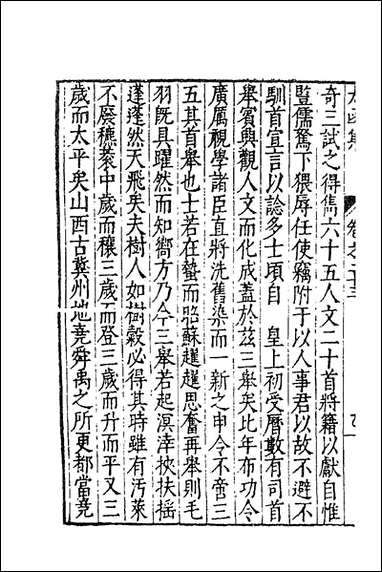 奇三試之得雋六十五人文二十首將籍以獻自惟
豎儒駑下猥辱任使竊附于以人事君以故不避不
馴首宣言以諗多士頃自　皇上初受曆數有司首
舉賓興觀人文而化成蓋於茲三舉矣比年布功令
廣厲視學諸臣直將洗舊染而一新之申令不啻三
五其首舉也士若在蟄而昭蘇趯趯思奮再舉則毛
羽旣具躍然而知嚮方乃今三舉若起溟涬挾扶搖
蓬蓬然天飛矣夫樹人如樹穀必得其時雖有汚萊
不廢穮蓘中歲而穰三歲而登三歲而升而平又三
歲而太平矣山西古冀州地堯舜禹之所更都當堯